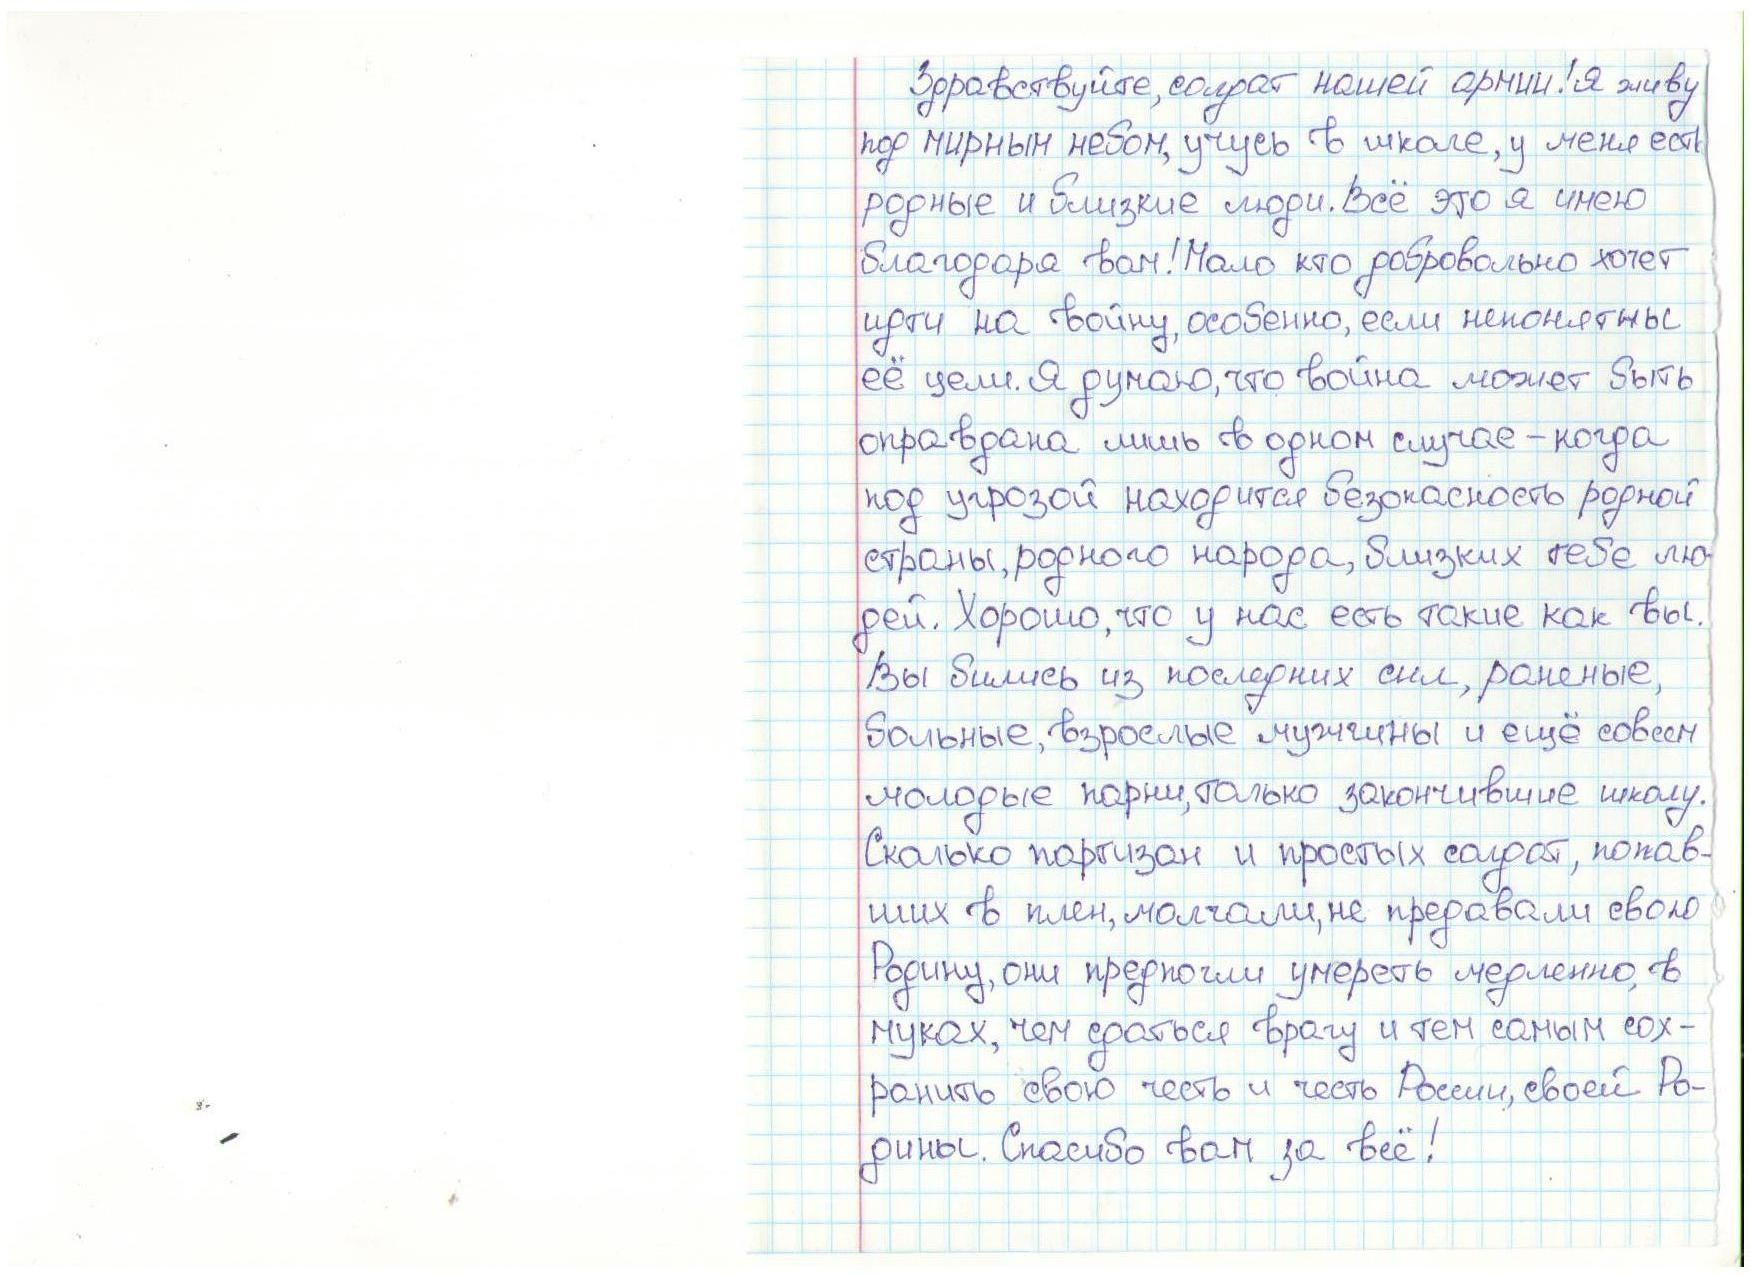 Здравствуйте, солдат нашей армии! Я живу
под мирным небом, учусь в школе, у меня есть
родные и близкие люди. Всё это я имею
благодаря вам! Мало кто добровольно хочет
идти на войну, особенно, если непонятны
её цели. Я думаю, что война может быть
оправдана лишь в одном случае – когда
под угрозой находится безопасность родной
страны, родного народа, близких тебе лю-
дей. Хорошо, что у нас есть такие как вы.
Вы бились из последних сил, раненые,
больные, взрослые мужчины и ещё совсем
молодые парни, только закончившие школу.
Сколько партизан и простых солдат, попав-
ших в плен, молчали, не предавали свою
Родину, они предпочли умереть медленно, в
муках, чем сдаться врагу и тем самым сох-
ранить свою честь и честь России, своей Ро-
дины. Спасибо вам за всё!